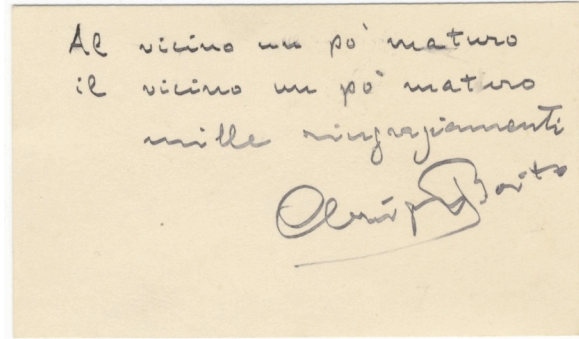 Al vicino un pò maturo
il vicino un pò maturo
mille ringraziamenti
Boito